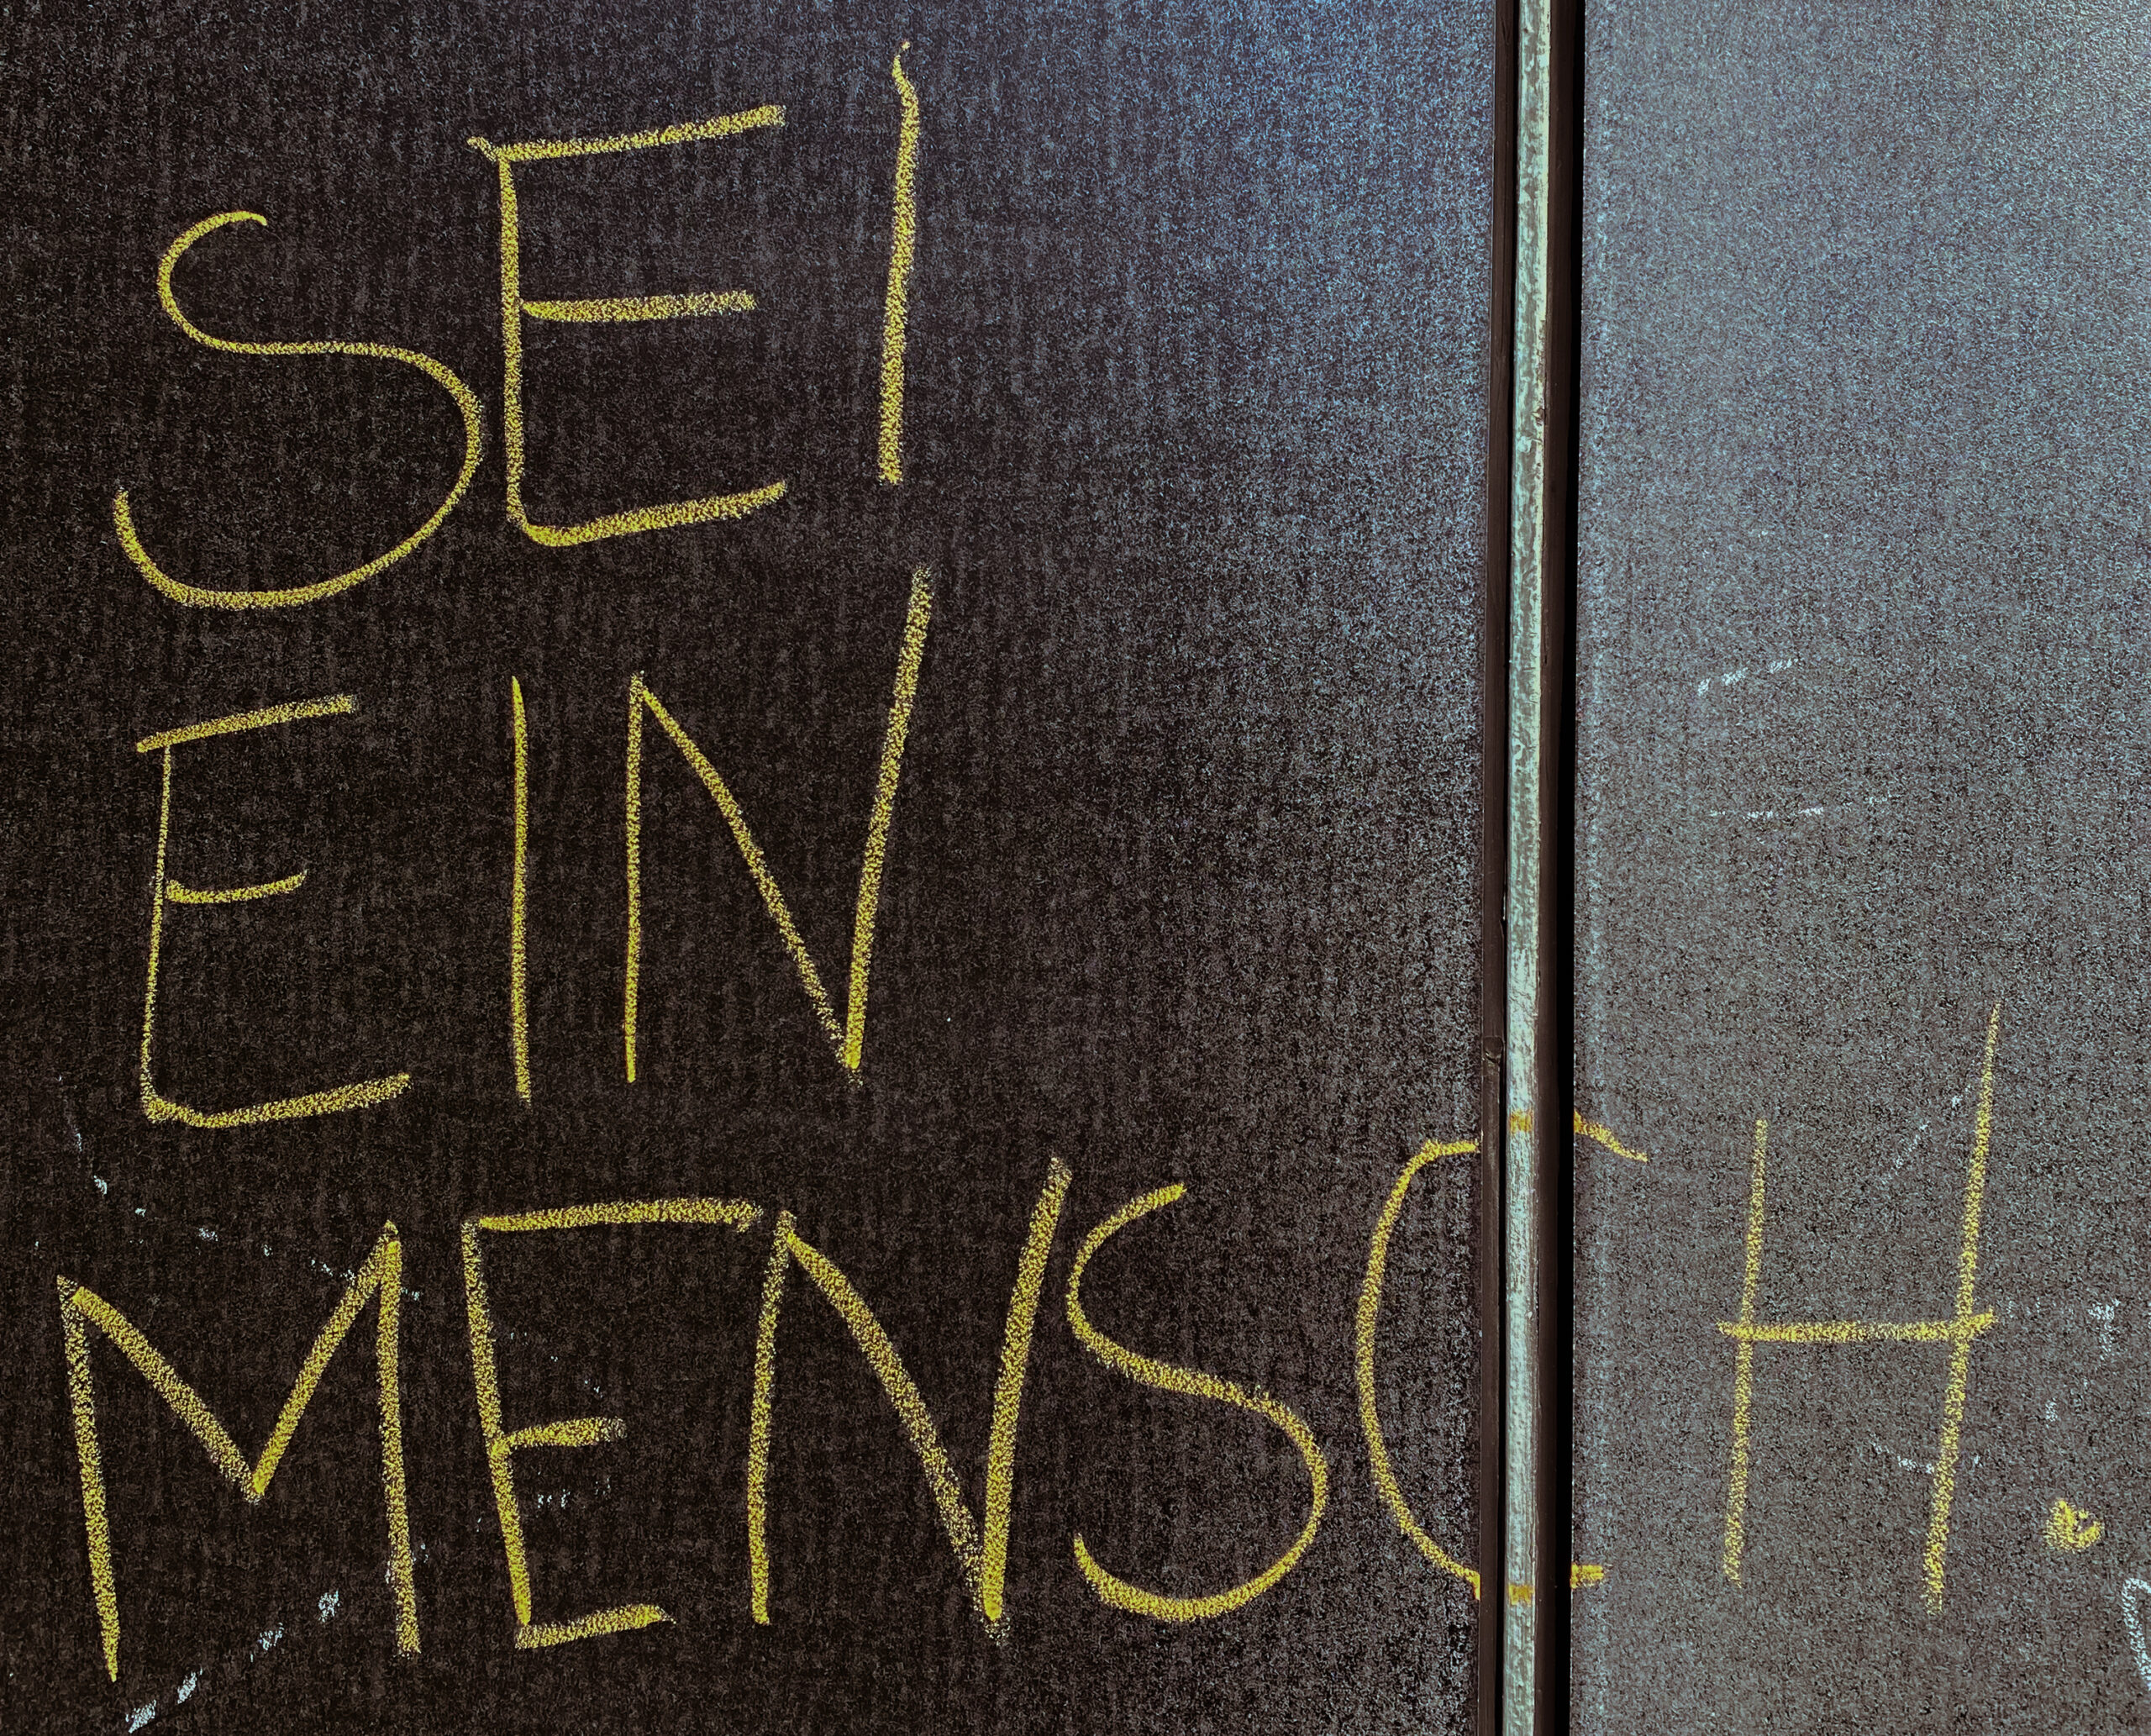 SEI
EIN
MENSCH.